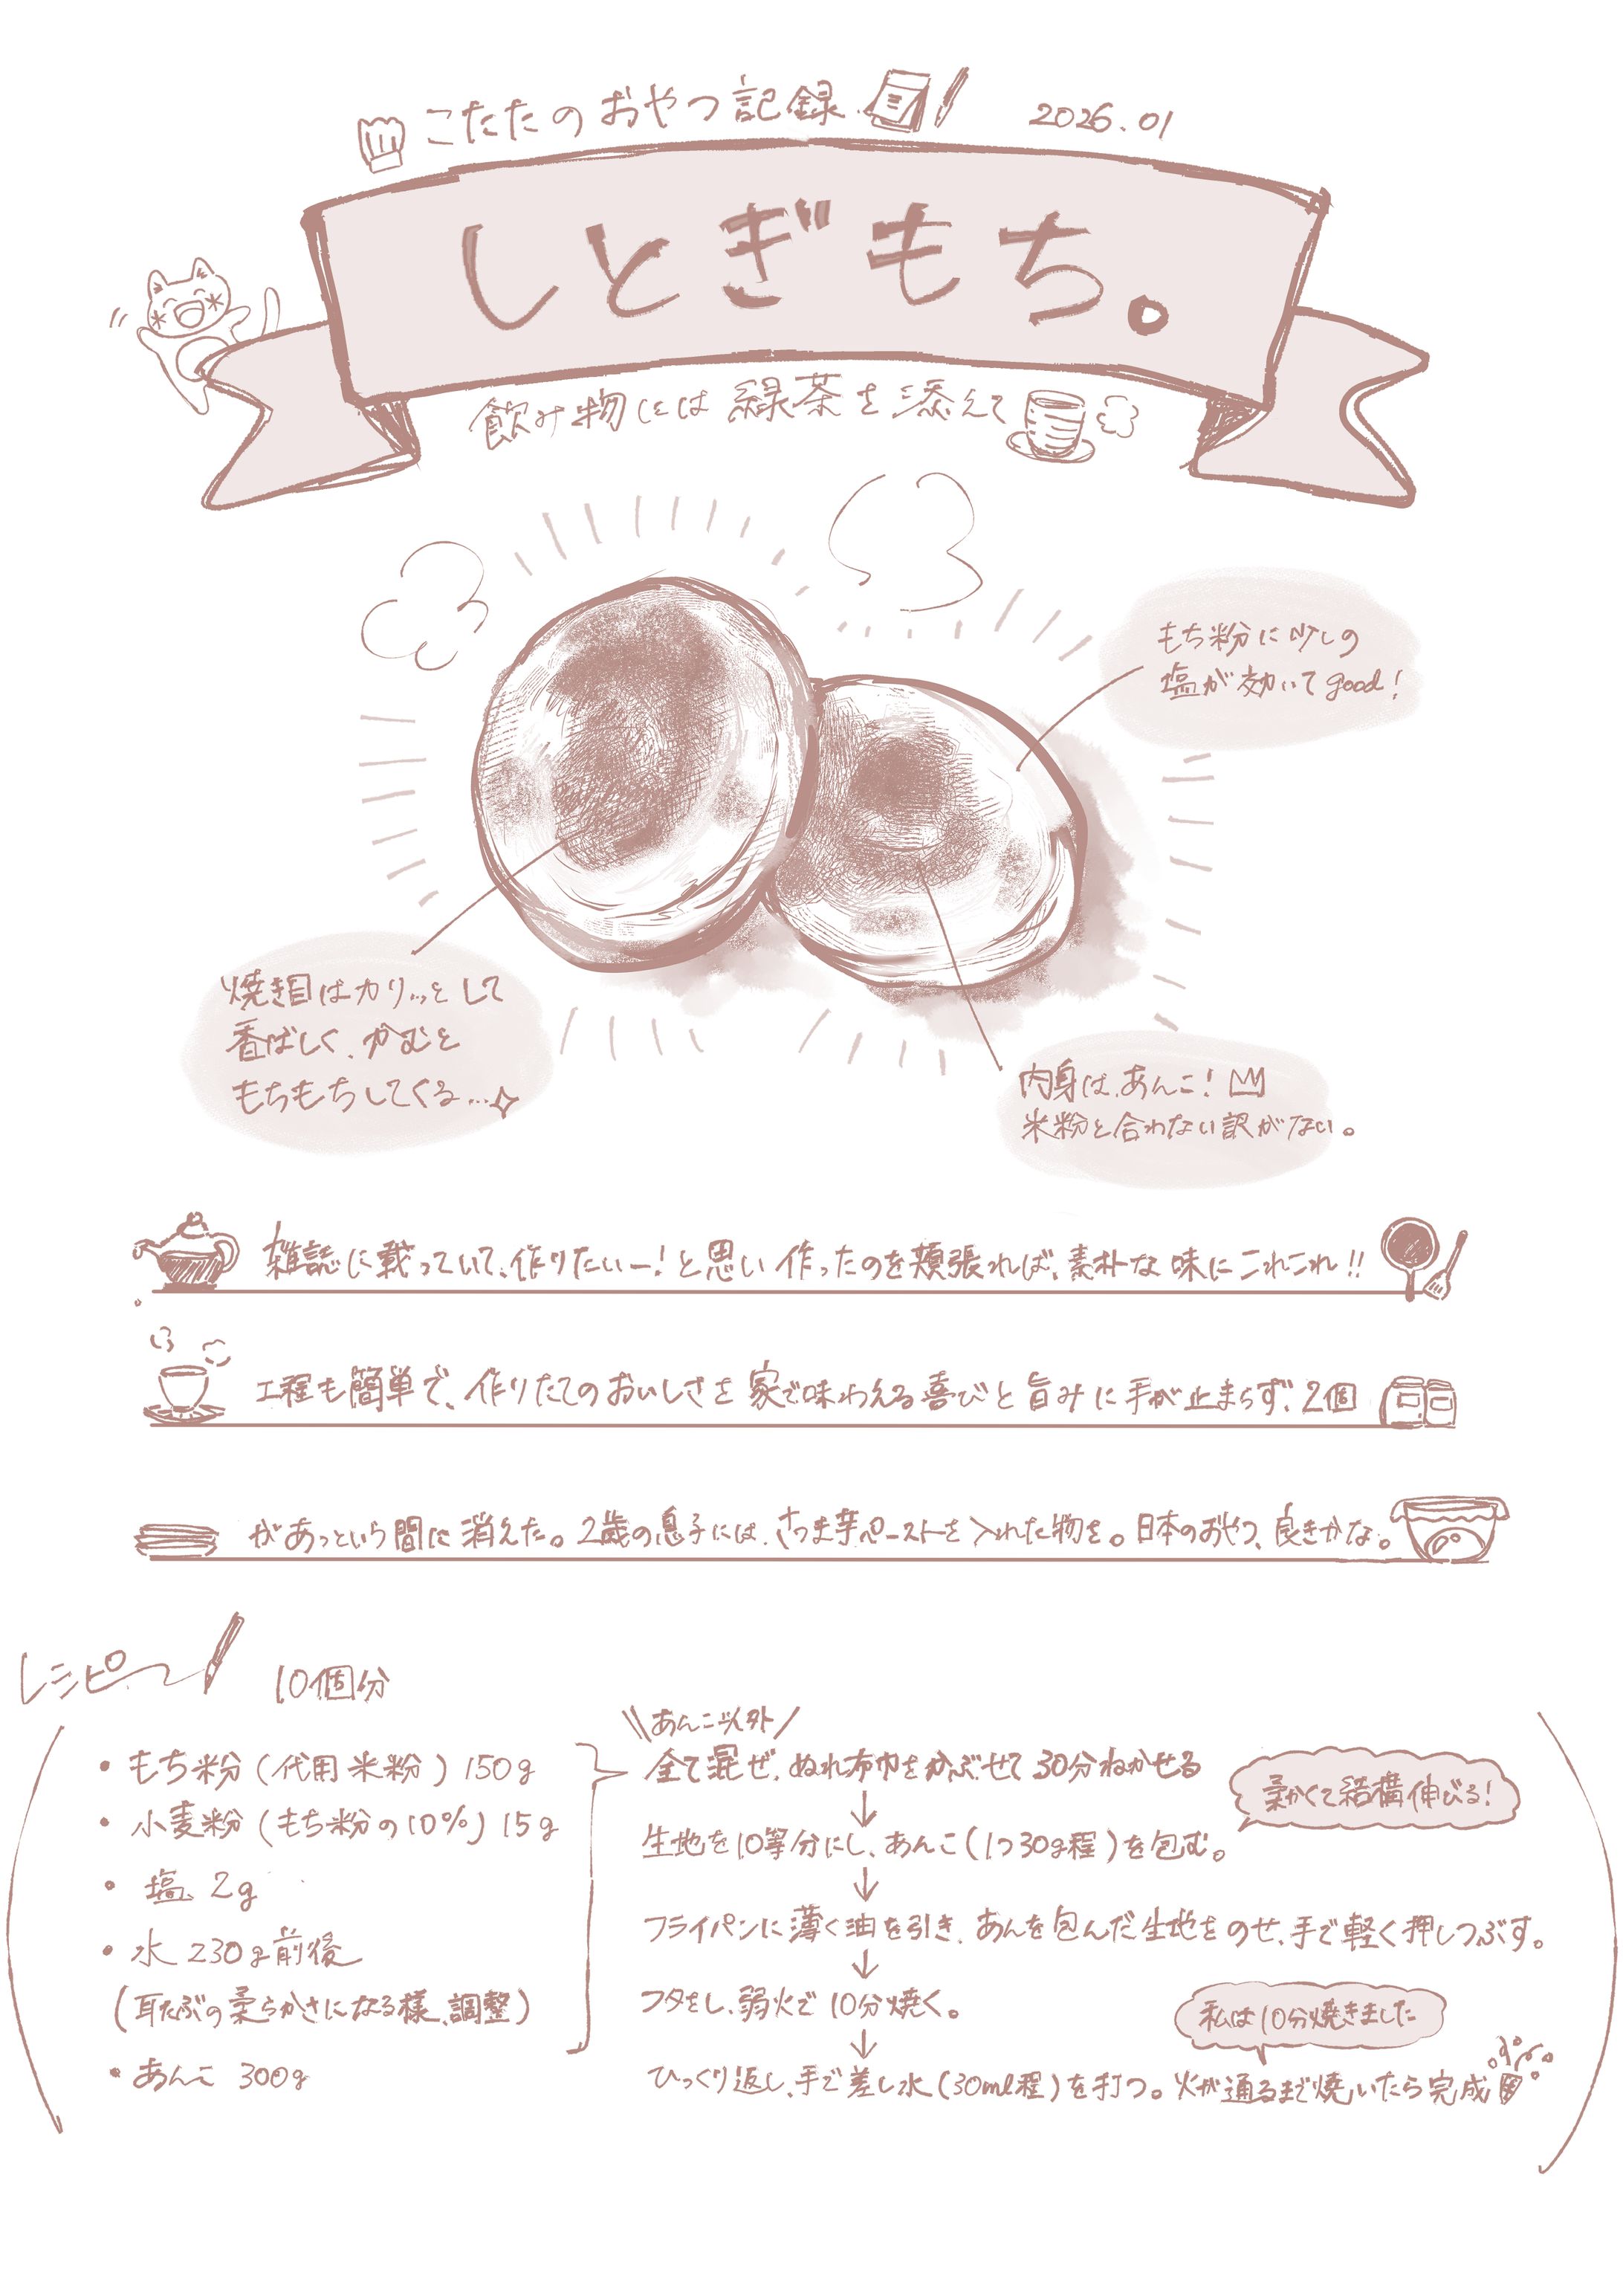 こたたのおやつ記録
2026.01
しとぎもち。
飲み物には緑茶を添えて
もち粉に少しの
塩が効いてgood!
焼き目はカリッとして
香ばしく、かむと
もちもちしてくる…
内身は、あんこ!
米粉と合わない訳がない。
雑誌に載っていて、作りたいー!と思い作ったのを頬張れば、素朴な味にこれこれ!!
工程も簡単で、作りたてのおいしさを家で味わえる喜びと旨みに手が止まらず、2個
があっという間に消えた。2歳の息子には、さつま芋ペーストを入れた物を。日本のおやつ、良きかな。
レシピ
10個分
・もち粉(代用米粉)150g
・小麦粉(もち粉の10%)15g
・塩 2g
・水230g前後
(耳たぶの柔らかさになる様、調整)
・あんこ 300g
\\あんこ以外/
全て混ぜ、ぬれ布巾をかぶせて30分ねかせる
↓
柔かくて結構伸びる!
生地を10等分にし、あんこ(1つ30g程)を包む。
↓
フライパンに薄く油を引き、あんを包んだ生地をのせ、手で軽く押しつぶす。
↓
フタをし、弱火で10分焼く。
↓
私は10分焼きました
ひっくり返し、手で差し水(30ml程)を打つ。火が通るまで焼いたら完成